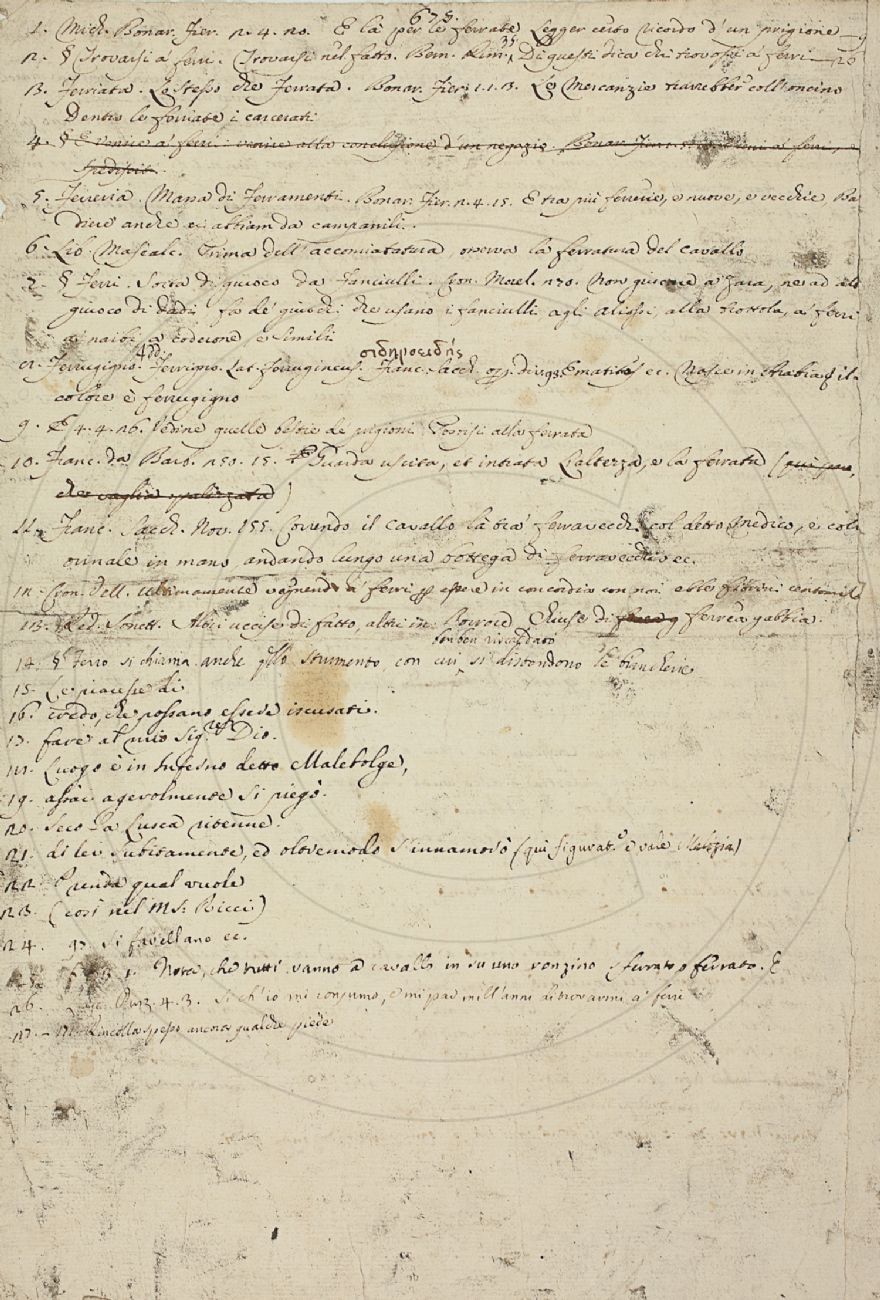 675.
1. Mich. Bonar. Fier. 2. 4. 20. E là per le ferrate Legger certo ricordo d'un prigione — 9
2. § Trovarsi a' ferri. Trovarsi nel fatto. Bern. Rim. 35 Di questi dica chi trovossi a' ferri — 26
3. Ferriata. Lo stesso che Ferrata. Bonar. Fier. 1. 1. 3. Le Mercanzie collioncino
Dentro le ferriate i carcerati
4. § E venire a' ferri: venire alla conclusione d'un negozio. Bonar. Fier. a' ferri, e
spedisci.
5. Ferreria. Massa di Ferramenti. Bonar. Fier. 2. 4. 15. E tra più ferrerie, e nuove, e vecchie Ba
dieci anche ci abbiam da campanili.
6. Lib. Mascalc. Prima dell'accomiatatura, osserva la ferratura del cavallo
7. § Ferri. Sorta di giuoco da Fanciulli. Cron. Morel. 270. Non giucare a zara, nè ad alt
giuoco di dadi, fa de' giuochi che usano i fanciulli agli aliossi, alla trottola, a' ferri
a' naibi, a codeone e simili
σιδηροειδής
8. Ferrugigno. Add. Ferrigno. Lat. ferrugineus. Franc. Sacch. op. div. 93. Ematites ec. Nasce in Arabia, e il
colore è ferrugigno
9. E 4. 4. 26. Vedine quelle bestie de' prigioni Porsisi alla ferrata
10. Franc. da Barb. 250. 15. E Guarda uscita, et intrata L'altezza, e la ferrata (qui pare,
che vaglia spalizzata)
11. Franc. Sacch. Nov. 155. Correndo il cavallo là tra' ferravecchi col detto medico, e coll'
orinale in mano andando lungo una bottega di ferravecchio ec.
12. Cron. Vell. Ultimamente vegnendo a' ferri p essere in concordia con noi ebbe fiorini centomil
13. Red. Sonett. Altri uccise di fatto, altri in Chiuse di ferrea gabbia.
14. § Ferro si chiama anche qllo strumento, con cui ben ben riscaldato si distendono le biancherie
15. Le piacesse di
16. credo, che possano essere iscusati.
17. fare al mio Sig.re Dio.
18. Luogo è in Inferno detto Malebolge,
19. assai agevolmente si piegò.
20. seco la Lusca ritenne.
21. di lei subitamente, ed oltremodo s'innamorò (qui figurat.e e vale Malizia)
22. E renda qual vuole
23. (così nel MS. Ricci)
24. 93. si favellano ec.
25. 1. Nota, che tutti vanno a cavallo in su uno ronzino sferrato, o ferrato. E
26. 4. 3. Sì ch'io mi consumo, e mi par mill'anni di trovarmi a' ferri
27. – Rincolla spesso ancora qualche piede